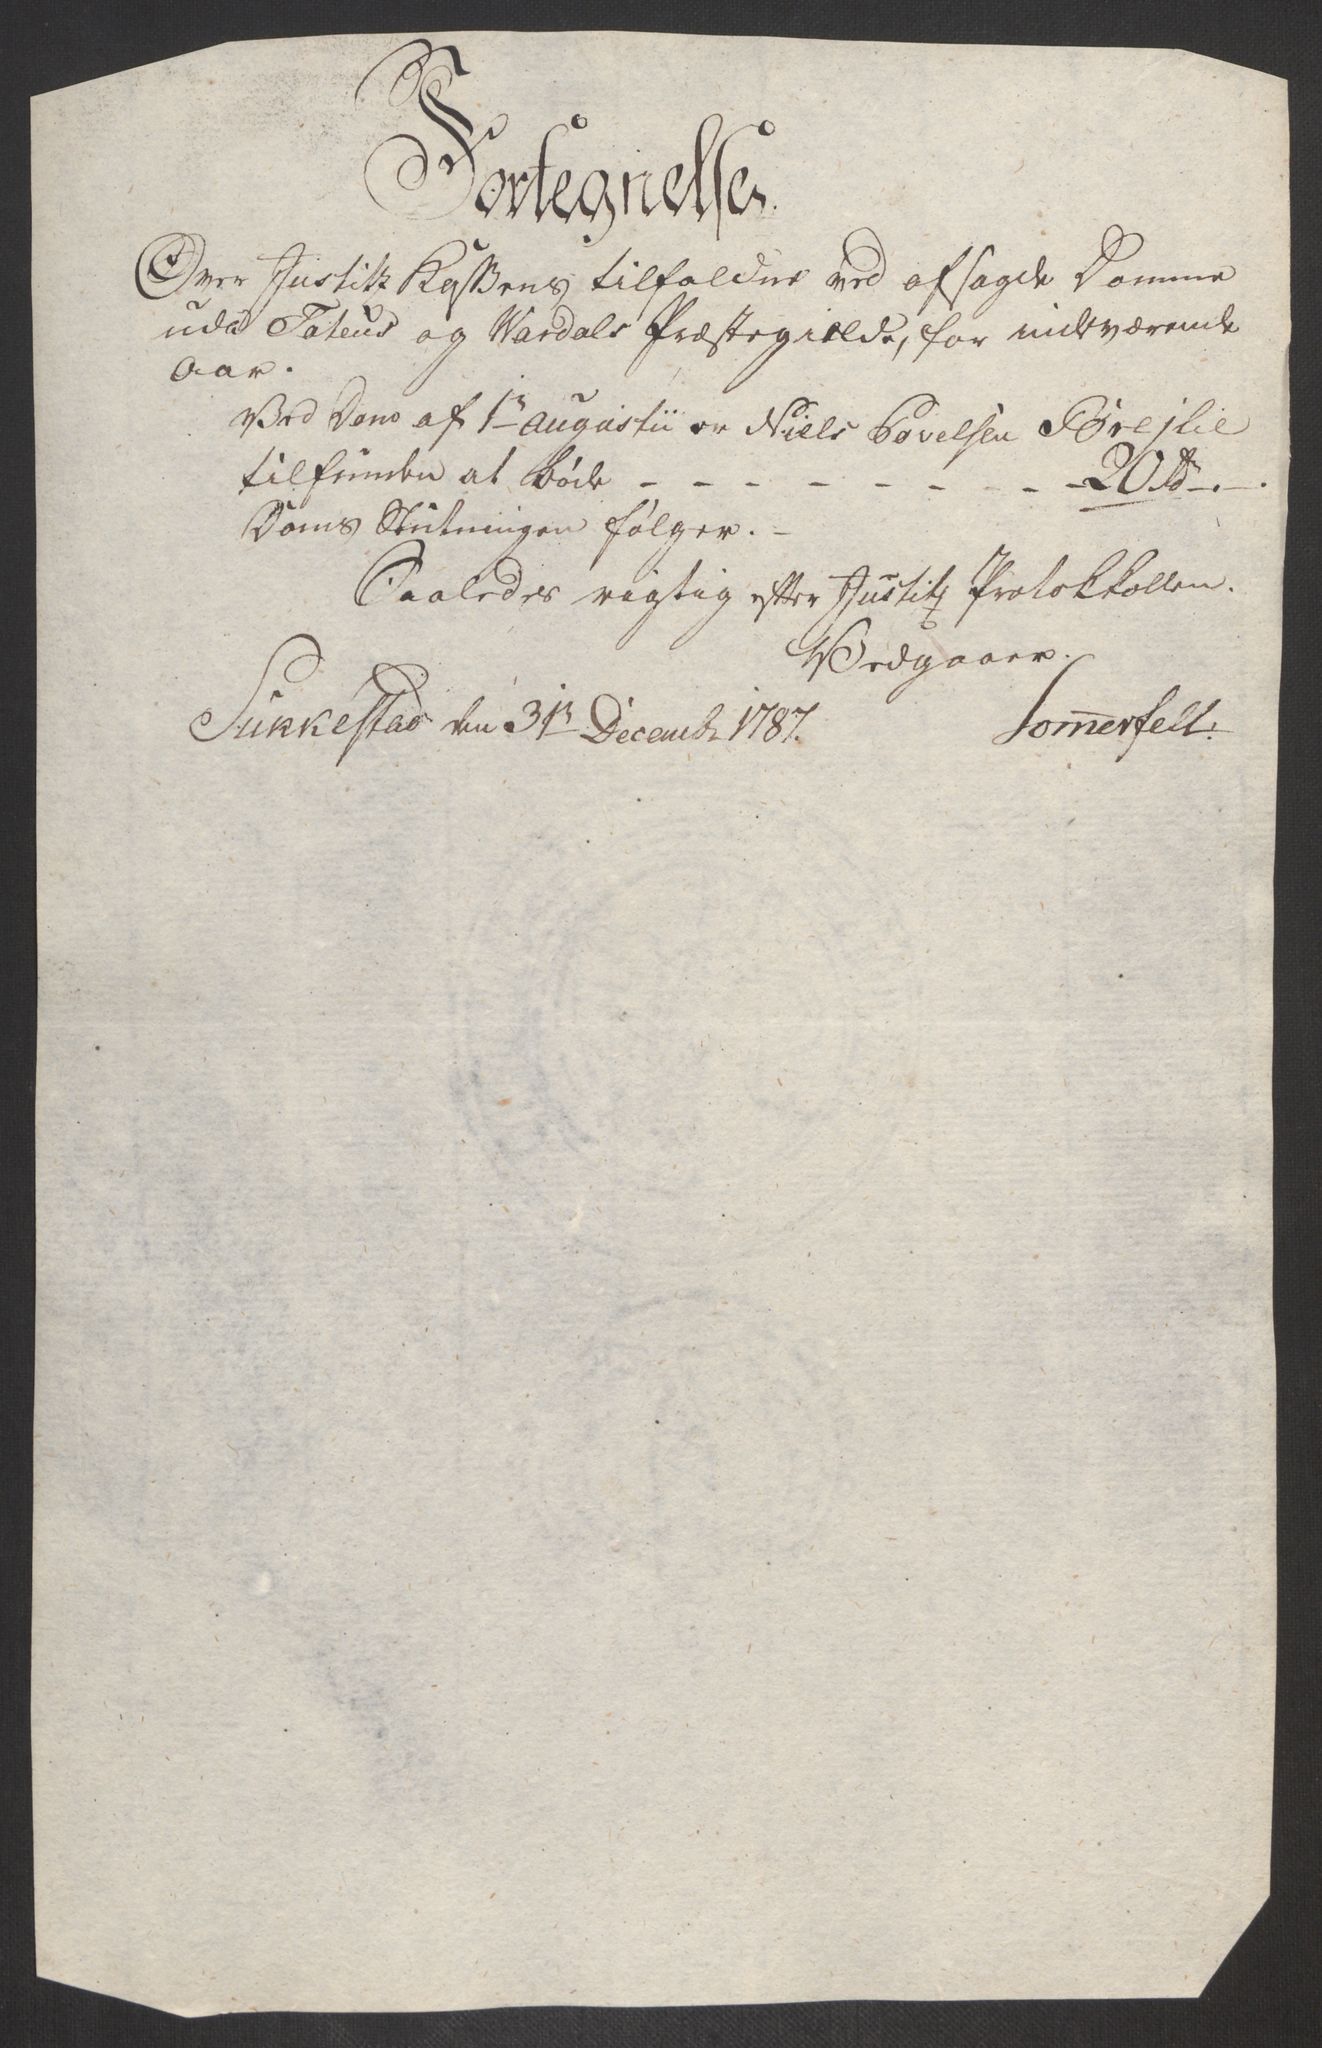 Fortegnelse
Over Justitz Kassens tilfaldne ved afsagde Domme
udi Totens og Wardals Præstegielde, for indeværende
Aar.
Ved Dom af 1ste Augustii er Niels Povelsen
tilfunden at bøde - - - - - - - - 20 rd -.-.
Doms Slutningen følger. -
Saaledes rigtig efter Justitz Protokkollen.
Vedgaaer.
Sukkestad den 31te Decembr 1787. Sommerfelt.